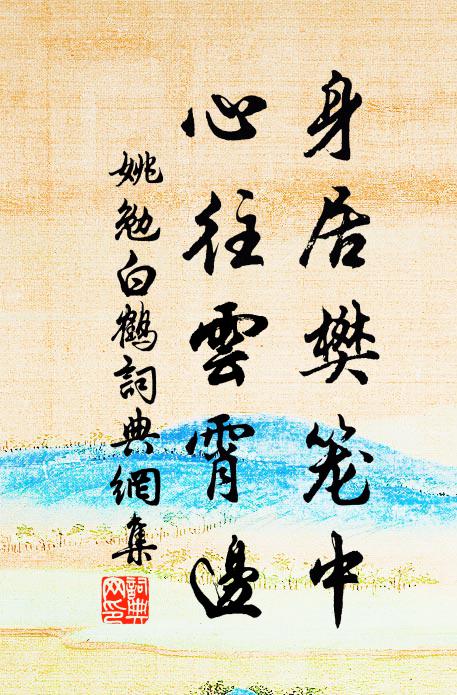 身居樊笼中
心往雲霄邊
姚勉白鶴詞典網集
詞典